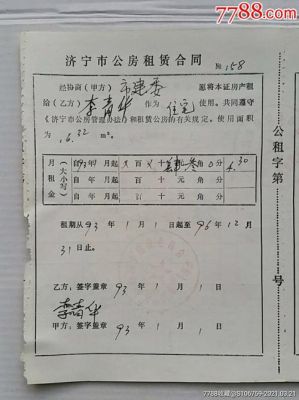 7788.com
济宁市公房租赁合同
№ 158
经协商(甲方) 市建委 愿将本证房产租
给(乙方) 李青华 作为 住宅 使用。共同遵守
《济宁市公房管理办法》和租赁公房的有关规定。使用面积
为 16.32 m²。
月租金(大小写)
年 月起 百 十 元 角 分 4.30
自 年 月起 百 十 元 角 分
自 年 月起 百 十 元 角 分
租期从 93 年 1 月 1 日起至 96 年 12 月
31 日止。
乙方:签字盖章 93 年 1 月 1 日
李青华
甲方:签字盖章 93 年 1 月 1 日
公租字第 号
7788收藏
2021.03.21